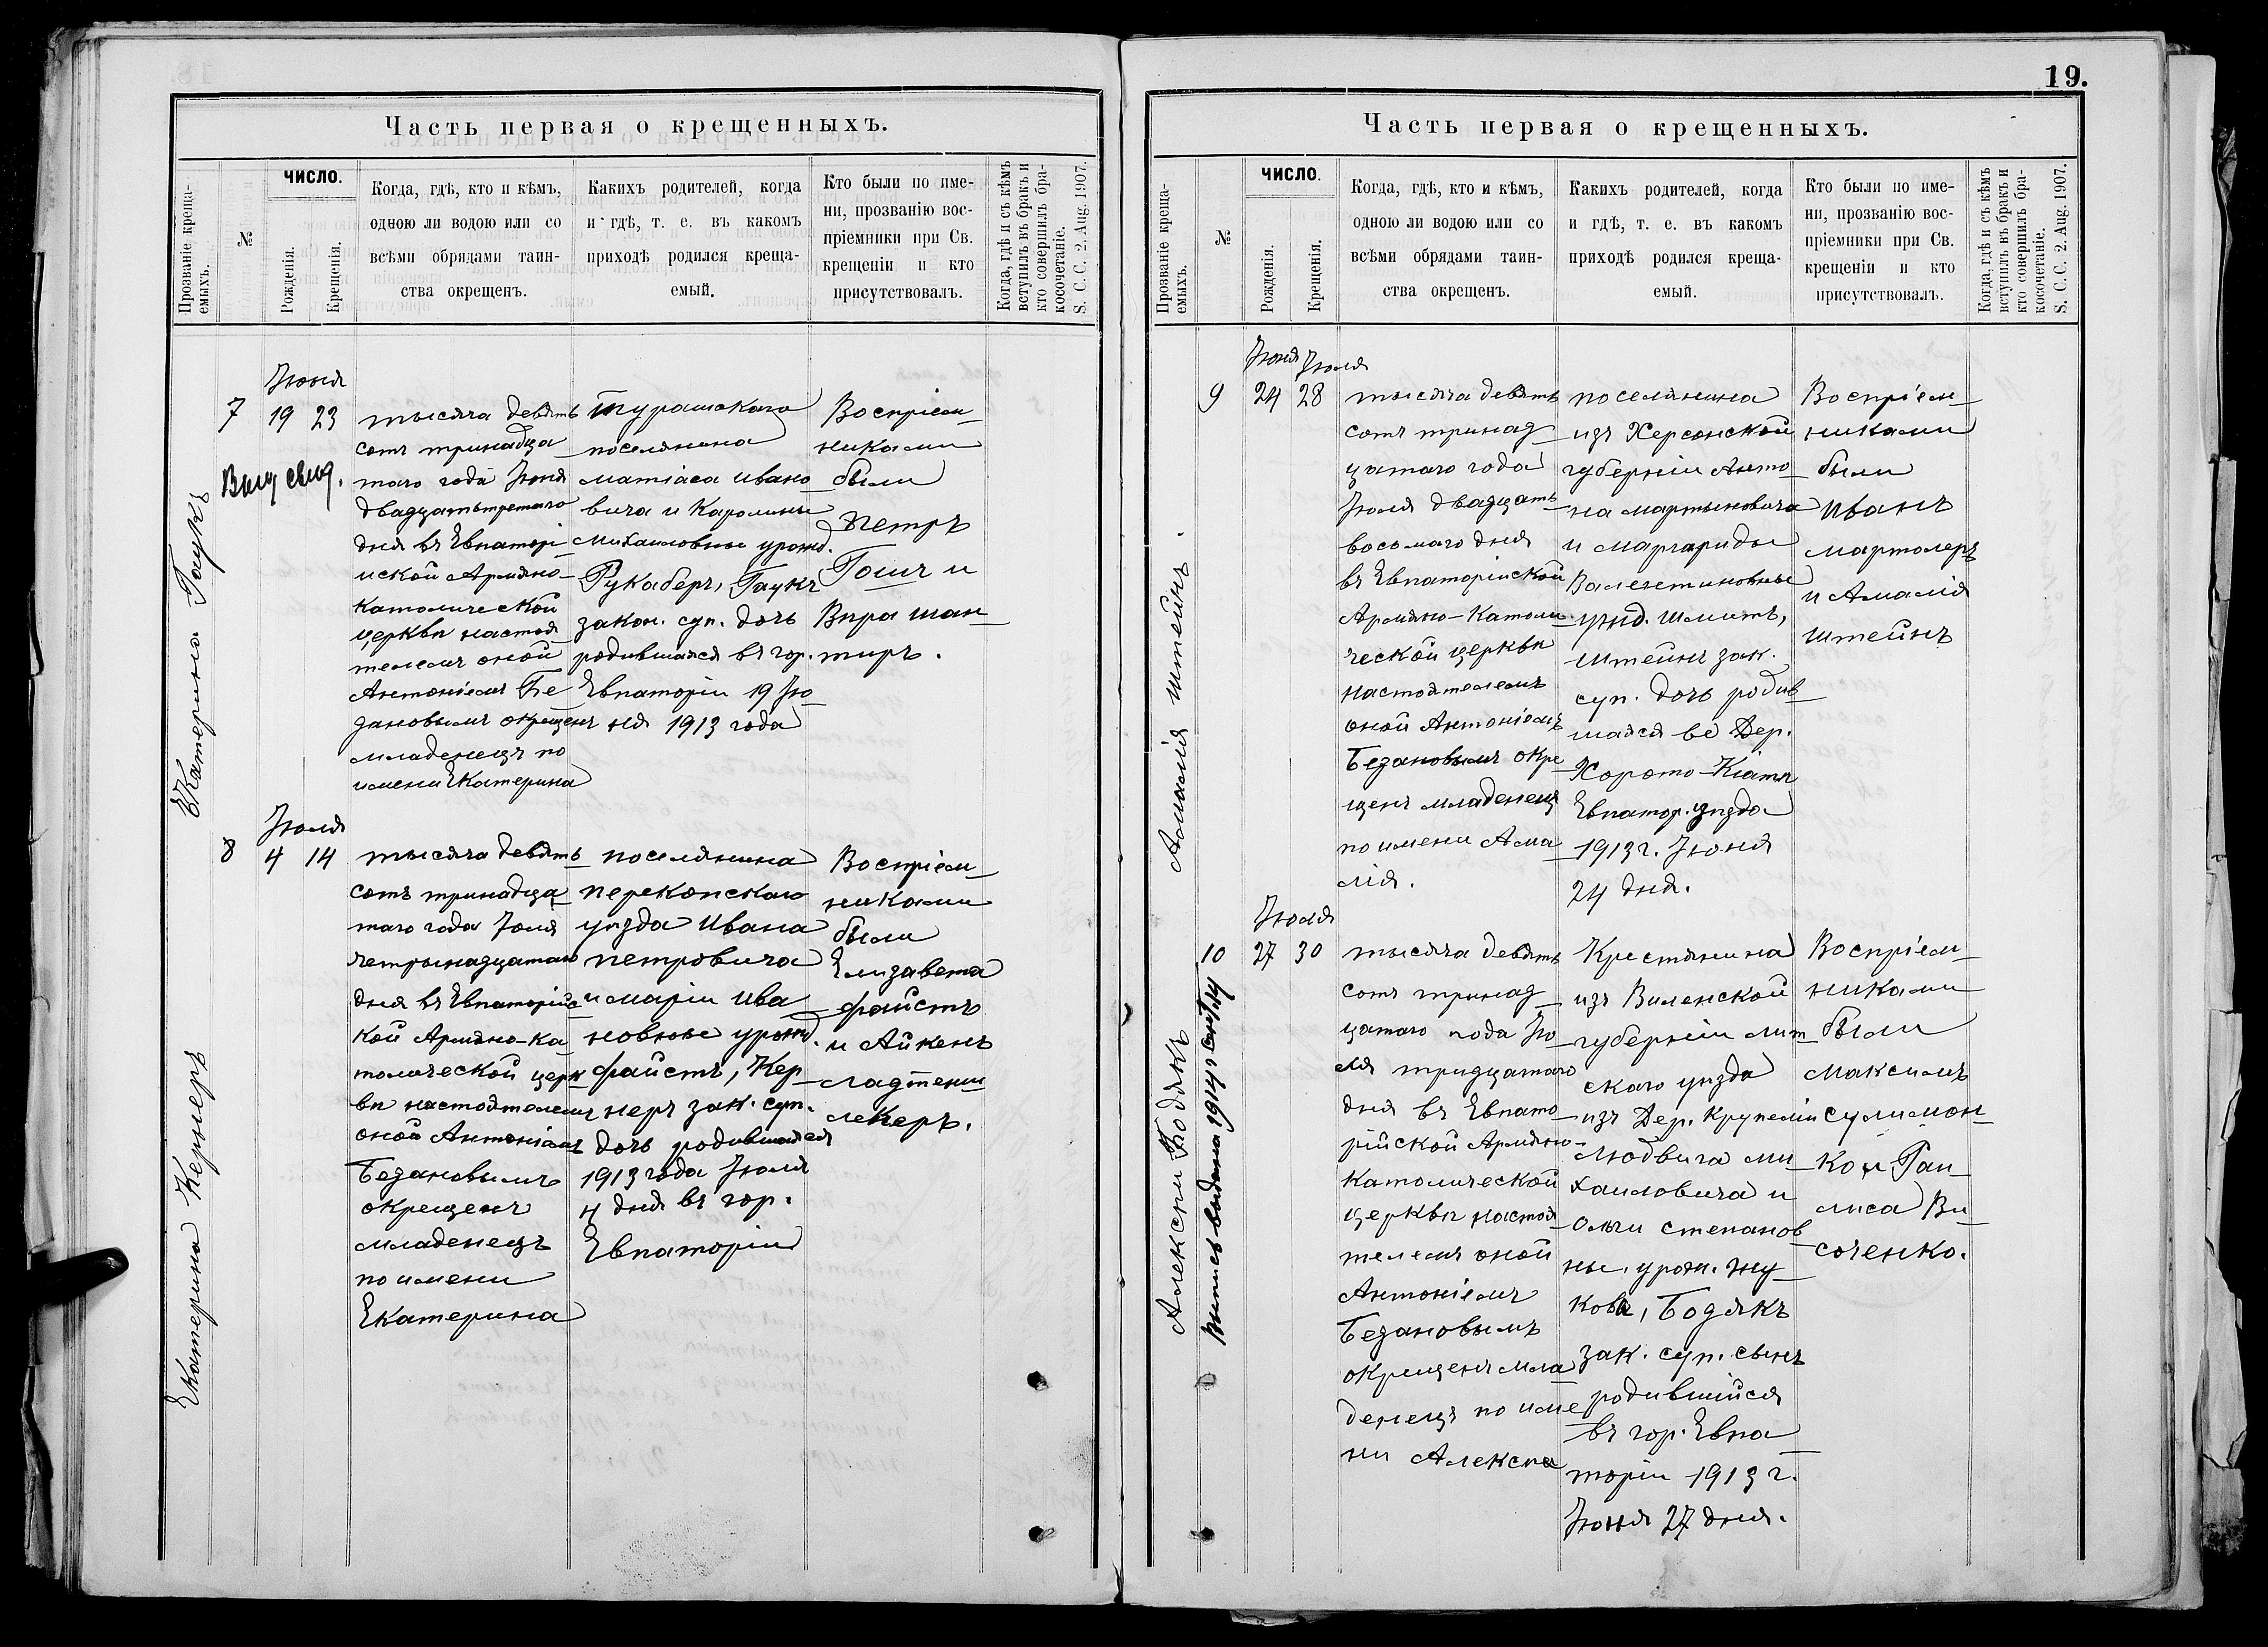 Часть первая о крещенныхъ.
Прозваніе креща-
емыхъ.
№
ЧИСЛО.
Рожденія.
Крещенія.
Когда, гдѣ, кто и кѣмъ,
одною ли водою или со
всѣми обрядами таин-
ства окрещенъ.
Какихъ родителей, когда
и гдѣ, т. е. въ какомъ
приходѣ родился креща-
емый.
Кто были по име-
ни, прозванію вос-
пріемники при Св.
крещеніи и кто
присутствовалъ.
Когда, гдѣ и съ кѣмъ
вступилъ въ бракъ и
кто совершилъ бра-
косочетаніе.
S. C. C. 2. Aug. 1907.
Екатерина Гаукъ
Іюня
7 19 23
тысяча девять
сотъ тринадца
таго года Іюня
двадцатьтретяго
дня въ Евпаторі
йской Армяно-
католической
церкви настоя
телемъ оной
Антоніемъ Бе
зановымъ окрещенъ
младенецъ по
имени Екатерина
поселянина
матіаса ивано
вича и Каролины
михаиловны урожд.
Рукаберъ, Гаукъ
закон. суп. дочь
родившаяся въ гор.
Евпаторіи 19 Ію
ня 1913 года
Воспріем
никами
были
петръ
Гошъ и
Вѣра шан
тиръ.
Екатерина Кернеръ
Іюля
8 4 14
тысяча девять
сотъ тринадца
таго года Іюля
четрынадцатаго
дня въ Евпаторійс
кой Армяно-ка
толической церк
ви настоятелемъ
оной Антоніемъ
Безановымъ
окрещенъ
младенецъ
по имени
Екатерина
поселянина
перекопскаго
уѣзда ивана
петровича
и маріи ива
новные урожд.
файстъ, Кер
неръ зак. суп.
дочь родившаяся
1913 года Іюля
4 дня въ гор.
Евпаторіи
Воспріем
никами
были
Елизавета
файстъ
и Айкенъ
лекеръ.
19.
Часть первая о крещенныхъ.
Прозваніе креща-
емыхъ.
№
ЧИСЛО.
Рожденія.
Крещенія.
Когда, гдѣ, кто и кѣмъ,
одною ли водою или со
всѣми обрядами таин-
ства окрещенъ.
Какихъ родителей, когда
и гдѣ, т. е. въ какомъ
приходѣ родился креща-
емый.
Кто были по име-
ни, прозванію вос-
пріемники при Св.
крещеніи и кто
присутствовалъ.
Когда, гдѣ и съ кѣмъ
вступилъ въ бракъ и
кто совершилъ бра-
косочетаніе.
S. C. C. 2. Aug. 1907.
Амалія штейнъ.
Іюня Іюля
9 24 28
тысяча девять
сотъ тринад
цатаго года
Іюля двадцать
восьмаго дня
въ Евпаторійской
Армяно-Католи
ческой церкви
настоятелемъ
оной Антоніемъ
Безановымъ окре
щенъ младенецъ
по имени Ама
лія.
поселянина
изъ Херсонской
губерніи Анто
на мартыновича
и маргариды
Валентиновные
уржд. шмитъ,
штейнъ зак.
суп. дочь родив
шаяся вс Дер.
Хорото-Кіятъ
Евпатор. уѣзда
1913 г. Іюня
24 дня.
Воспріем
никами
были
иванъ
мартолеръ
и Амалія
штейнъ
Алексѣи Бодякъ
Выпись выдана 1914 г
Іюля
10 27 30
тысяча девять
сотъ тринад
цатаго года Ію
ля тридцатаго
дня въ Евпато
рійской Армяно-
католической
церкви настоя
телемъ оной
Антоніемъ
Безановымъ
окрещенъ мла
денецъ по име
ни Алексѣи
Крестянина
изъ Виленской
губерніи лит
скаго уѣзда
изъ Дер. Крупеліи
людвига ми
хаиловича и
ольги степанов
ны. урож. жу
кова, Бодякъ
зак. суп. сынъ
родившійся
въ гор. Евпа
торіи 1913 г.
Іюня 27 дня.
Воспріем
никами
были
максимъ
сулимон
ко и Раи
лиса Ви
соченко.